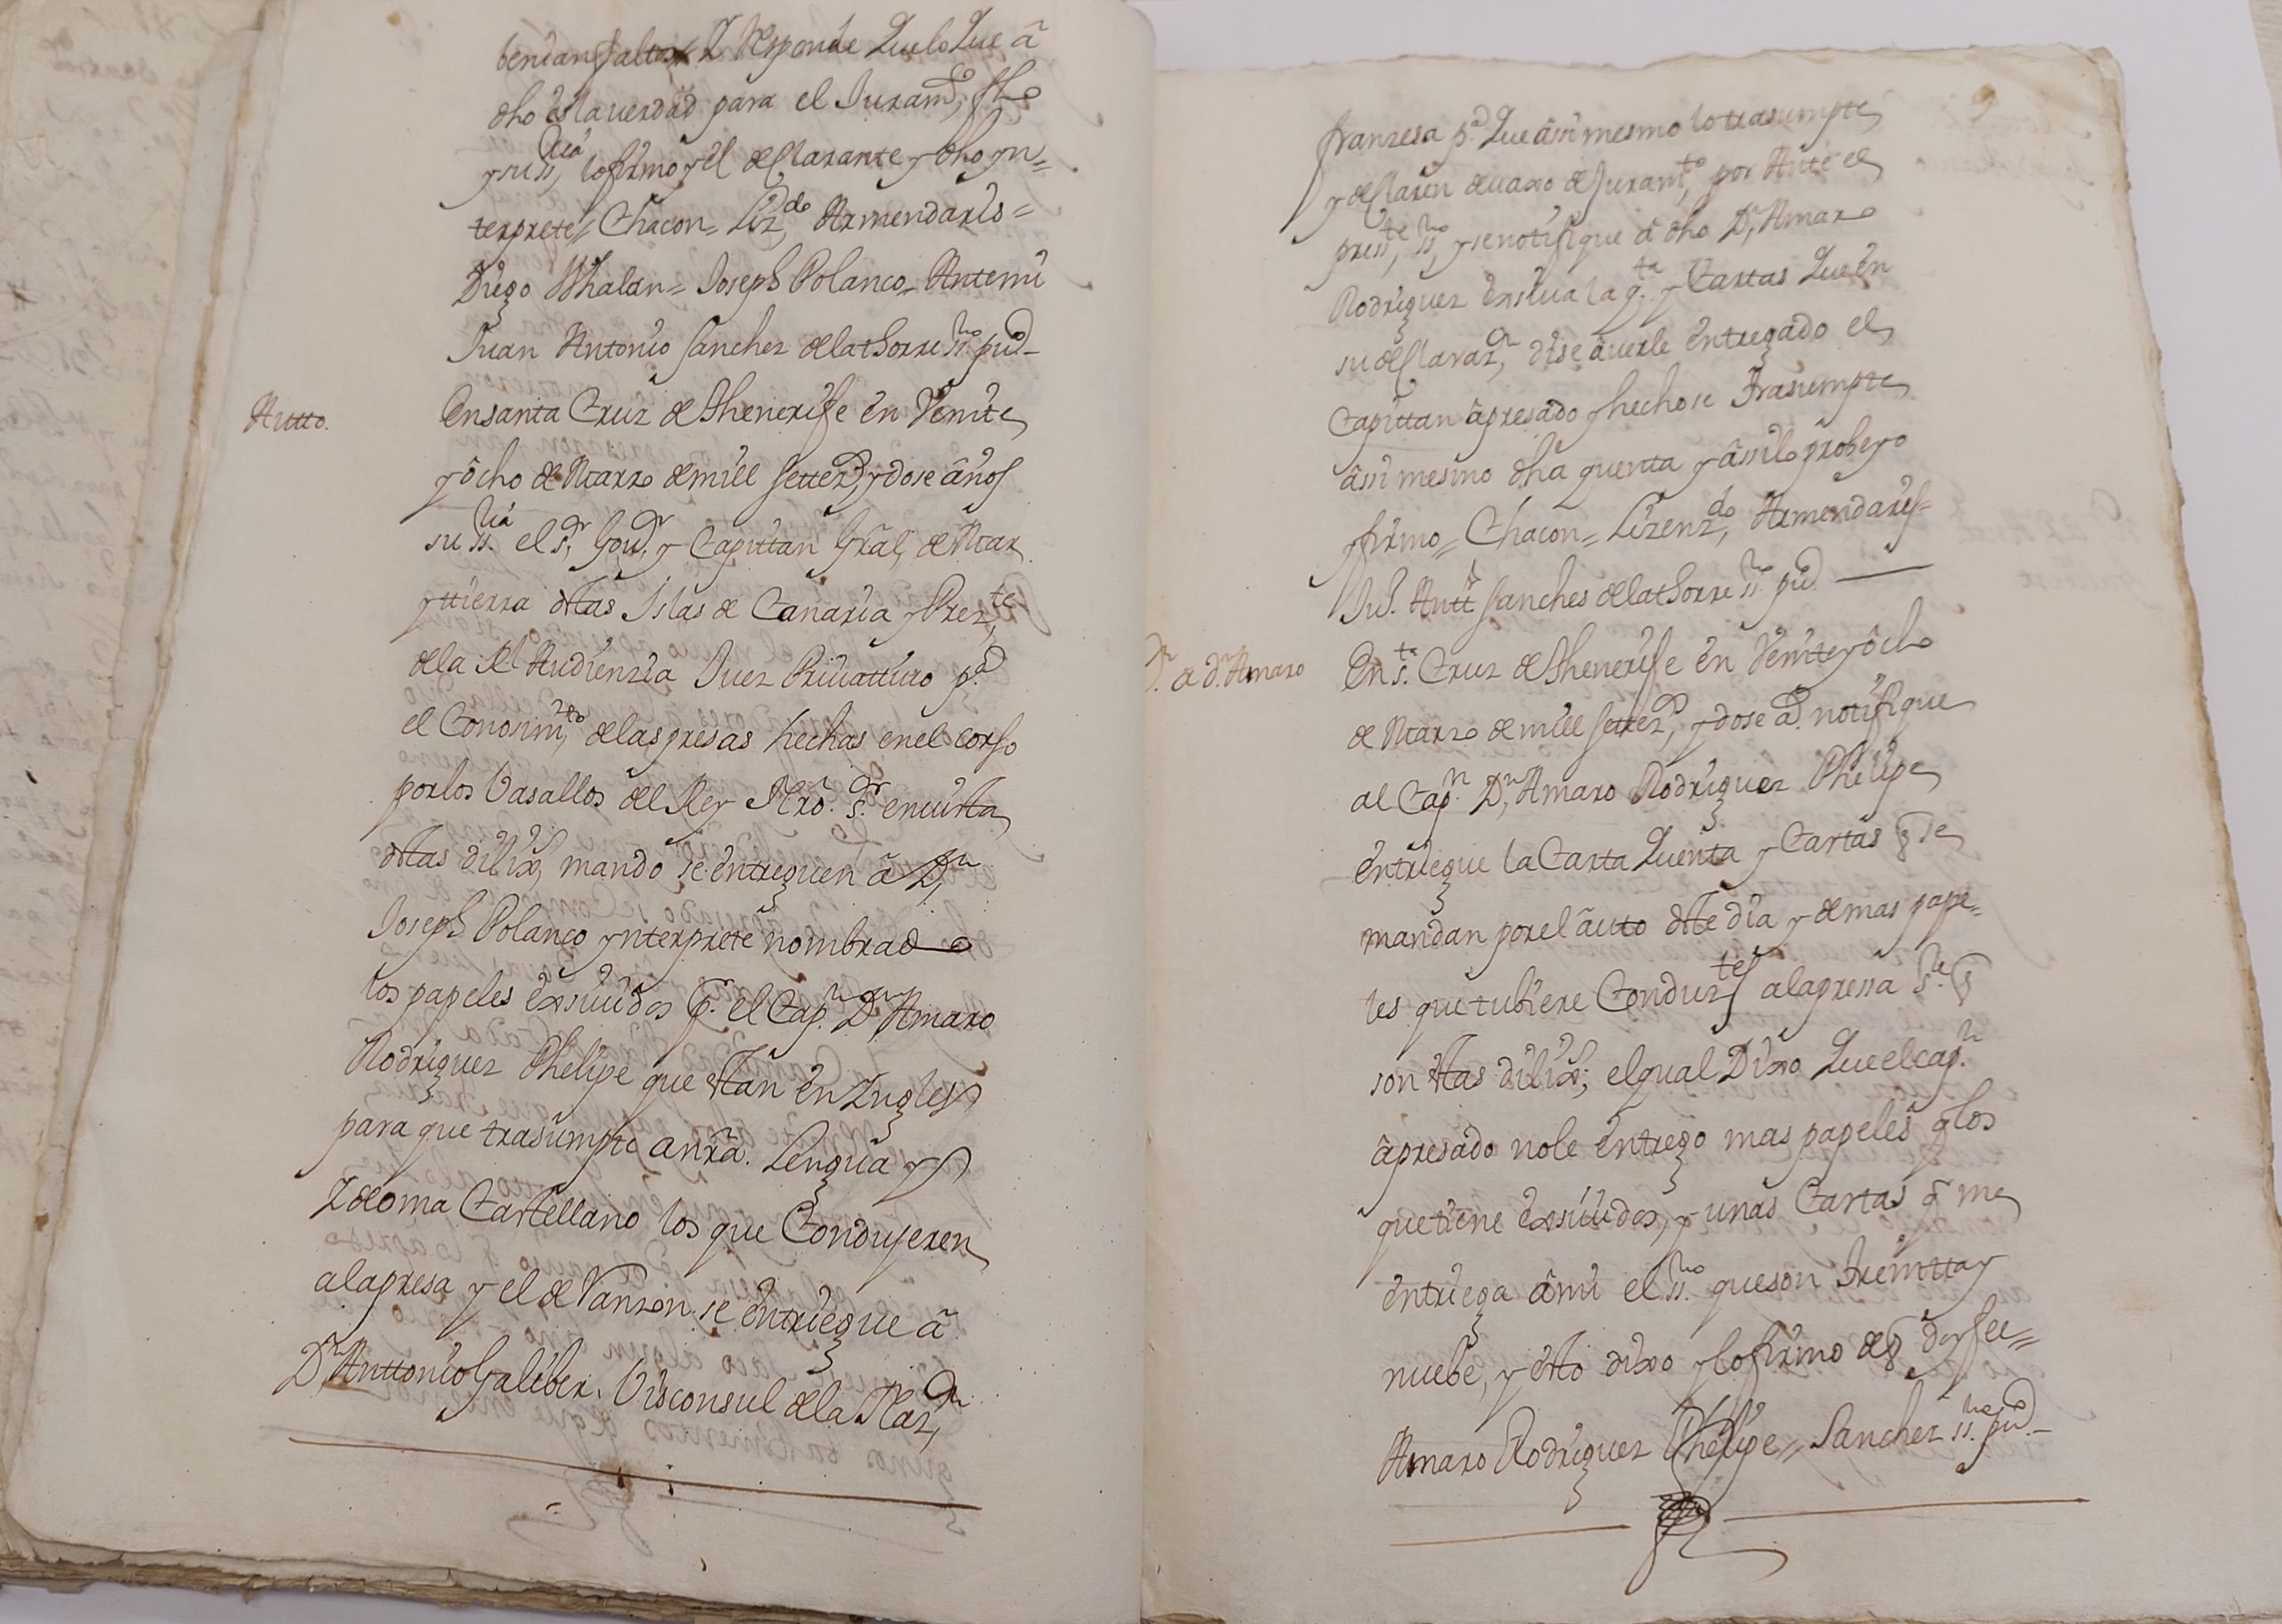 benian faltos Y Responde Que lo Que â
dho es la verdad para el Juramto fho
y su ssria lo firmo y el declarante y dho yn=
terprete, Chacon= Lizdo Armendaris=
Diego Whalan= Joseph Polanco= Antemi
Juan Antonio Sanchez de la thorre ssno puco
Autto.
En santa Cruz de thenerife en Veinte
y ôcho de Marzo de mill settezs y dose años
su ssria el sr Govr y Capitan Gral de Mar
y tierra destas Islas de Canaria y Prezte
de la Rl Audienzia Juez Privattivo pa
el Conosimto de las presas hechas en el corso
por los Vasallos del Rey Nro. sr en vista
destas diligs mando se entreguen â Dn
Joseph Polanco ynterprete nombrado
los papeles exsividos pr el Capn Dn Amaro
Rodriguez Phelipe que estan en Yngles
para que trasumpte a nra. Lengua y
Ydioma Castellano los que Condugeren
a la presa y el de Vanzon se entriegue â
Dn Anttonio Galiber. Visconsul de la Nazn
9
franzesa pa Que âsi mesmo lo trasumpte
y declaren devaxo de Juramto por Ante el
presste ssno y se notifique â dho Dn Amaro
Rodriguez exsiva la qta y Cartas Que en
su declarazn dise âverle entregado el
Capittan âpresado y hecho se trasumpte
âsi mesmo dha quenta y âsi lo probeyo
y firmo= Chacon= Lizenzdo Armendaris=
Jun. Antt Sanches de la thorre ssno puco
Nn a dn Amaro
En sta Cruz de thenerife en Veinte y ôcho
de Marzo de mill settezs y dose as notifique
al Capn Dn Amaro Rodriguez Phelipe
entriegue la Carta Quenta y Cartas q se
mandan por el âuto deste dia y demas pape=
les que tubiere Conduztes a la pressa sre q
son estas diligs; el qual Dixo Que el capn
âpresado no le entrego mas papeles q los
que tiene exsividos, y unas Cartas q me
entriega âmi el ssno que son treintta y
nuebe, y esto dixo y lo firmo de q doy fee=
Amaro Rodriguez Phelipe= Sanchez ssno puco